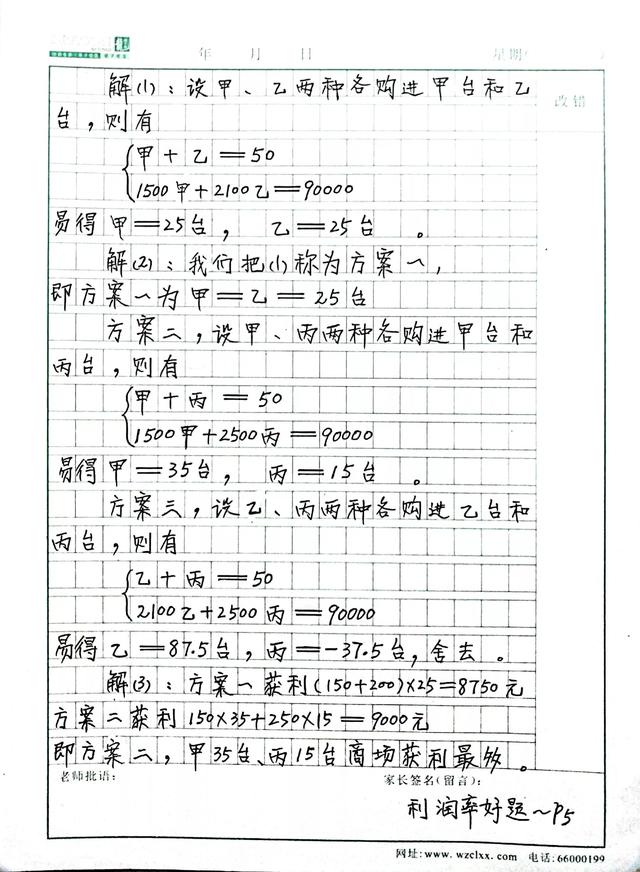 年 月 日 星期
改错
解(1)：设甲、乙两种各购进甲台和乙
台，则有
甲＋乙＝50
1500甲＋2100乙＝90000
易得甲＝25台，乙＝25台。
解(2)：我们把(1)称为方案一，
即方案一为甲＝乙＝25台
方案二，设甲、丙两种各购进甲台和
丙台，则有
甲＋丙＝50
1500甲＋2500丙＝90000
易得甲＝35台，丙＝15台。
方案三，设乙、丙两种各购进乙台和
丙台，则有
乙＋丙＝50
2100乙＋2500丙＝90000
易得乙＝87.5台，丙＝－37.5台，舍去。
解(3)：方案一获利(150+200)×25＝8750元
方案二获利150×35+250×15＝9000元
即方案二，甲35台、丙15台商场获利最多。
老师批语： 家长签名(留言)：
利润率好题～P5
网址：www.wzclxx.com 电话：66000199